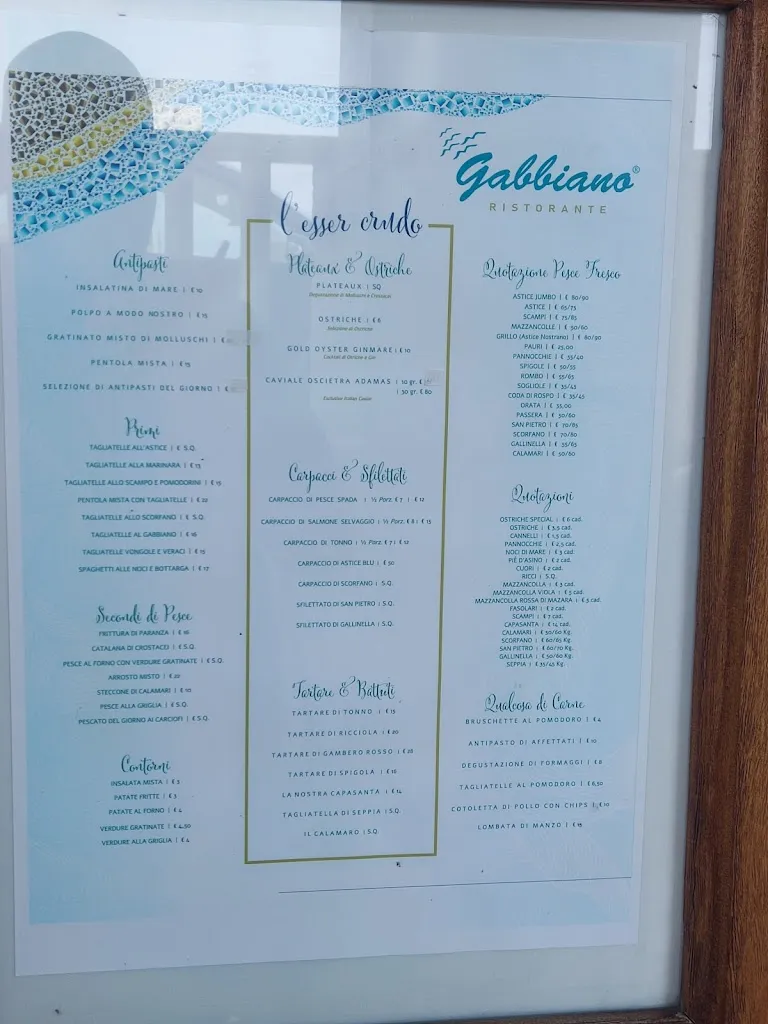 Gabbiano®
RISTORANTE
Antipasti
INSALATINA DI MARE | € 10
POLPO A MODO NOSTRO | € 15
GRATINATO MISTO DI MOLLUSCHI | €
PENTOLA MISTA | € 15
SELEZIONE DI ANTIPASTI DEL GIORNO | €
Primi
TAGLIATELLE ALL'ASTICE | € S.Q.
TAGLIATELLE ALLA MARINARA | € 13
TAGLIATELLE ALLO SCAMPO E POMODORINI | € 15
PENTOLA MISTA CON TAGLIATELLE | € 22
TAGLIATELLE ALLO SCORFANO | € S.Q.
TAGLIATELLE AL GABBIANO | € 16
TAGLIATELLE VONGOLE E VERACI | € 15
SPAGHETTI ALLE NOCI E BOTTARGA | € 17
Secondi di Pesce
FRITTURA DI PARANZA | € 16
CATALANA DI CROSTACEI | € S.Q.
PESCE AL FORNO CON VERDURE GRATINATE | € S.Q.
ARROSTO MISTO | € 22
STECCONE DI CALAMARI | € 10
PESCE ALLA GRIGLIA | € S.Q.
PESCATO DEL GIORNO AI CARCIOFI | € S.Q.
Contorni
INSALATA MISTA | € 3
PATATE FRITTE | € 3
PATATE AL FORNO | € 4
VERDURE GRATINATE | € 4,50
VERDURE ALLA GRIGLIA | € 4
l'esser crudo
Plateaux & Ostriche
PLATEAUX | SQ
Degustazione di Molluschi e Crostacei
OSTRICHE | € 6
Selezione di Ostriche
GOLD OYSTER GINMARE | € 10
Cocktail di Ostriche e Gin
CAVIALE OSCIETRA ADAMAS | 10 gr. €
| 30 gr. € 80
Exclusive Italian Caviar
Carpacci & Sfilettati
CARPACCIO DI PESCE SPADA | ½ Porz. € 7 | € 12
CARPACCIO DI SALMONE SELVAGGIO | ½ Porz. € 8 | € 15
CARPACCIO DI TONNO | ½ Porz. € 7 | € 12
CARPACCIO DI ASTICE BLU | € 30
CARPACCIO DI SCORFANO | S.Q.
SFILETTATO DI SAN PIETRO | S.Q.
SFILETTATO DI GALLINELLA | S.Q.
Tartare & Battuti
TARTARE DI TONNO | € 15
TARTARE DI RICCIOLA | € 20
TARTARE DI GAMBERO ROSSO | € 28
TARTARE DI SPIGOLA | € 16
LA NOSTRA CAPASANTA | € 14
TAGLIATELLA DI SEPPIA | S.Q.
IL CALAMARO | S.Q.
Quotazione Pesce Fresco
ASTICE JUMBO | € 80/90
ASTICE | € 65/75
SCAMPI | € 75/85
MAZZANCOLLE | € 50/60
GRILLO (Astice Nostrano) | € 80/90
PAURI | € 25,00
PANNOCCHIE | € 35/40
SPIGOLE | € 50/55
ROMBO | € 55/65
SOGLIOLE | € 35/45
CODA DI ROSPO | € 35/45
ORATA | € 35,00
PASSERA | € 50/60
SAN PIETRO | € 70/85
SCORFANO | € 70/80
GALLINELLA | € 55/65
CALAMARI | € 50/60
Quotazioni
OSTRICHE SPECIAL | € 6 cad.
OSTRICHE | € 3,5 cad.
CANNELLI | € 1,5 cad.
PANNOCCHIE | € 2,5 cad.
NOCI DI MARE | € 3 cad.
PIÈ D'ASINO | € 2 cad.
CUORI | € 2 cad.
RICCI | S.Q.
MAZZANCOLLA | € 3 cad.
MAZZANCOLLA VIOLA | € 5 cad.
MAZZANCOLLA ROSSA DI MAZARA | € 5 cad.
FASOLARI | € 2 cad.
SCAMPI | € 7 cad.
CAPASANTA | € 14 cad.
CALAMARI | € 50/60 Kg.
SCORFANO | € 60/65 Kg.
SAN PIETRO | € 60/70 Kg.
GALLINELLA | € 50/60 Kg.
SEPPIA | € 35/45 Kg.
Qualcosa di Carne
BRUSCHETTE AL POMODORO | € 4
ANTIPASTO DI AFFETTATI | € 10
DEGUSTAZIONE DI FORMAGGI | € 8
TAGLIATELLE AL POMODORO | € 6,50
COTOLETTA DI POLLO CON CHIPS | € 10
LOMBATA DI MANZO | € 15